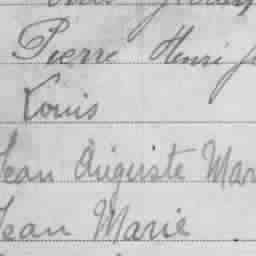 Pierre Henri
Louis
Jean Auguste Mar
Jean Marie